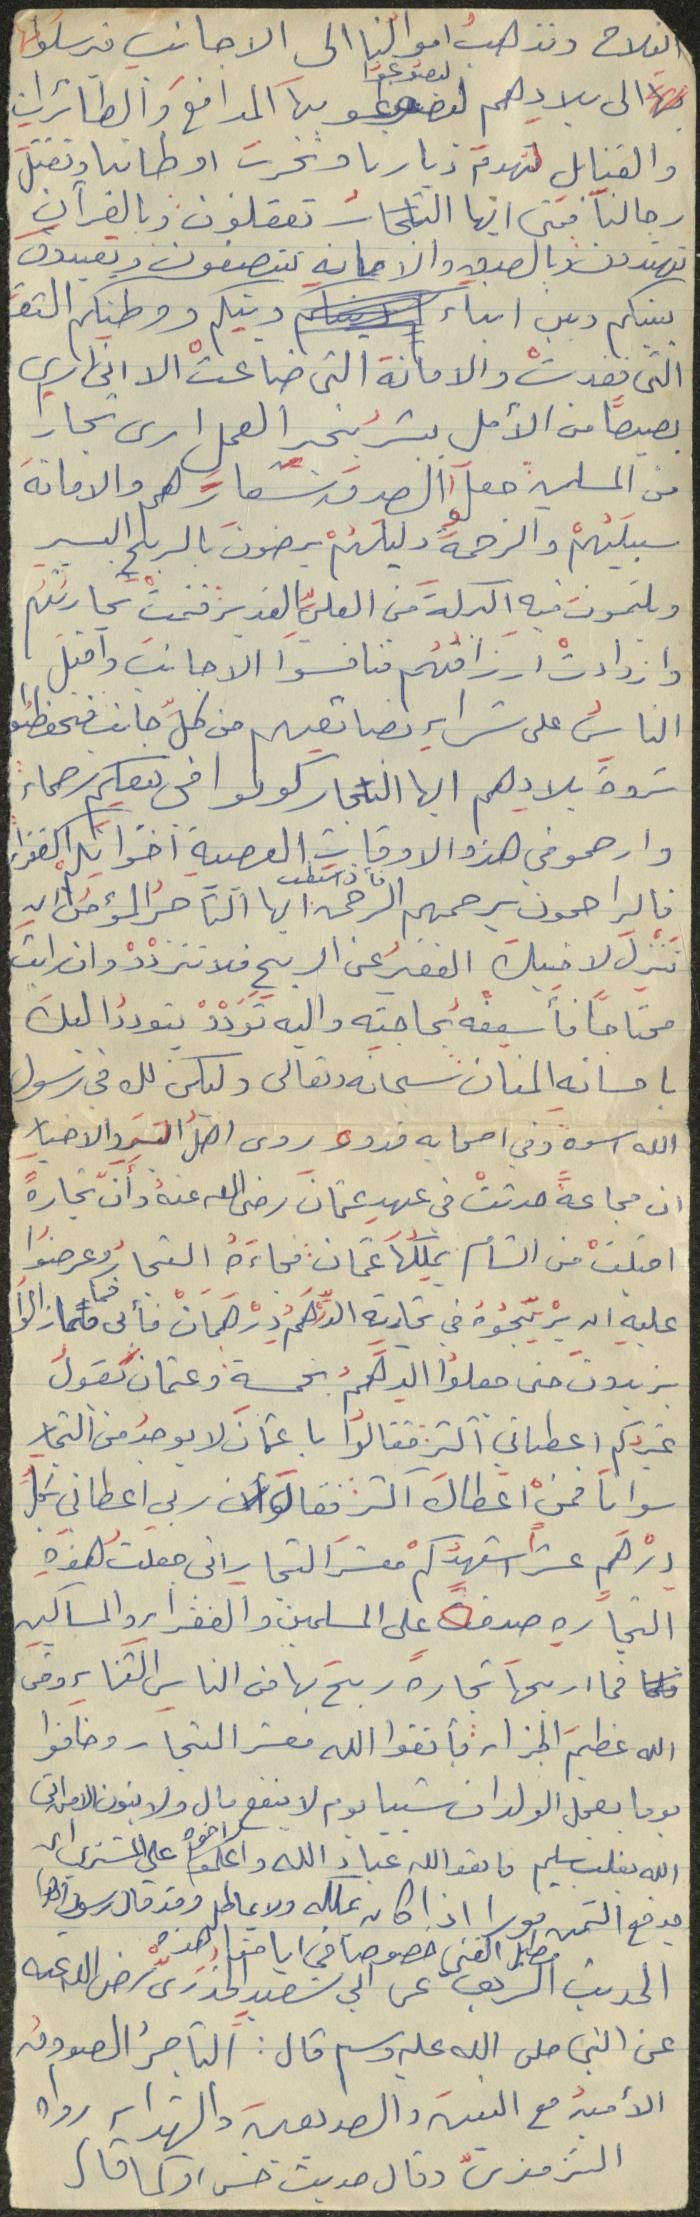 الفلاح وتذهبُ اموالُنا الى الاجانب فيرسلونها
الى بلادهم ليصنعوا بها المدافعَ والطائراتِ
والقنابل لتهدمَ ديارنا وتخربَ اوطاننا وتقتلَ
رجالنا فمتى ايها التجارُ تعقلون وبالقرآنِ
تهتدون وبالصدقِ والامانهِ تتصفون وتعيدون
بينكم وبين ابناء دينكم ووطنكم الثقة
التى فقدتْ والامانة التى ضاعتْ الا انى ارى
بصيصاً من الأمل يبشرُ بخيرِ العمل ارى تجاراً
من المسلمين جعلوا الصدقَ شعارَهم والامانةَ
سبيلَهُمْ والرحمةَ دليلَهُمْ يرضونَ بالربح اليسير
ويلتمسون فيه البركةَ من العليِّ القدير فنمتْ تجارتُهُم
وازدادتْ ارزاقُهُم فنافسوا الاجانبَ وأقبلَ
الناسُ على شراءِ بضائعهم من كلِّ جانب فحفظوا
ثروةَ بلادِهم ايها التجار كونوا في بيعكم رحماءَ
وارحموا في هذه الاوقاتِ العصيبةِ اخوانَكم الفقراء
فالراحمون يرحمهم الرحمن ايها التاجرُ المؤمنُ ان
تنزلَ لاخيك الفقيرِ عن الربحِ فلا تترددْ وان رايتَ
محتاجاً فأسعفه بحاجتِه واليه تَوَدَّدْ يتوددُ اليك
باحسانه المنان سبحانه وتعالى وليكن لك في رسول
الله اسوة وفي اصحابه قدوه روى اهلُ السيرِ والاخبار
ان مجاعةً حدثتْ في عهدِ عثمانَ رضى الله عنهُ وأنَّ تجارةً
اقبلتْ من الشام يملكُها عثمان فجاءَهُ التجارُ وعرضوا
عليهِ ان يُرَبِّحُوهُ في تجارتِه الدِّرْهَمُ دِرْهَمَانْ فأبى فما زالوا
يزيدون حتى جعلوا الدرهمُ بخمسة وعثمان يقولُ
غيركم اعطاني اكثر فقالوا يا عثمانَ لا يوجدُ من التجار
سوانا فمَنْ اعطاك اكثر فقال ان ربى اعطاني بكلِّ
دِرْهَمٍ عشراً اشهِدُكمْ معشرَ التجار انى جعلتُ هذهِ
التجارهَ صدقةً على المسلمين والفقراءِ والمساكين
فما اربحها تجارةً ربحَ بها من الناسِ الثناءَ ومن
الله عظيمَ الجزاءِ فأتقوا الله معشر التجار وخافوا
يوما يجعل الولدان شيبا يوم لا ينفع مال ولا بنون الا من اتى
الله بقلب سليم فاتقوا الله عباد الله واعلموا على المشترى ان
يدفع الثمن فورا اذا كان يملكه ولا يماطل وقد قال رسول الله
مطل الغنى خصوصاً في ايامنا هذه
الحديث الشريف عن ابي سعيدٍ الخدريِّ رضى الله عنه
عن النبى صلى الله عليه وسلم قال : التاجرُ الصدوقُ
الأمينُ مع النبيين والصديقين والشهداءِ رواه
الترمذىُّ وقال حديث حسن او كما قال